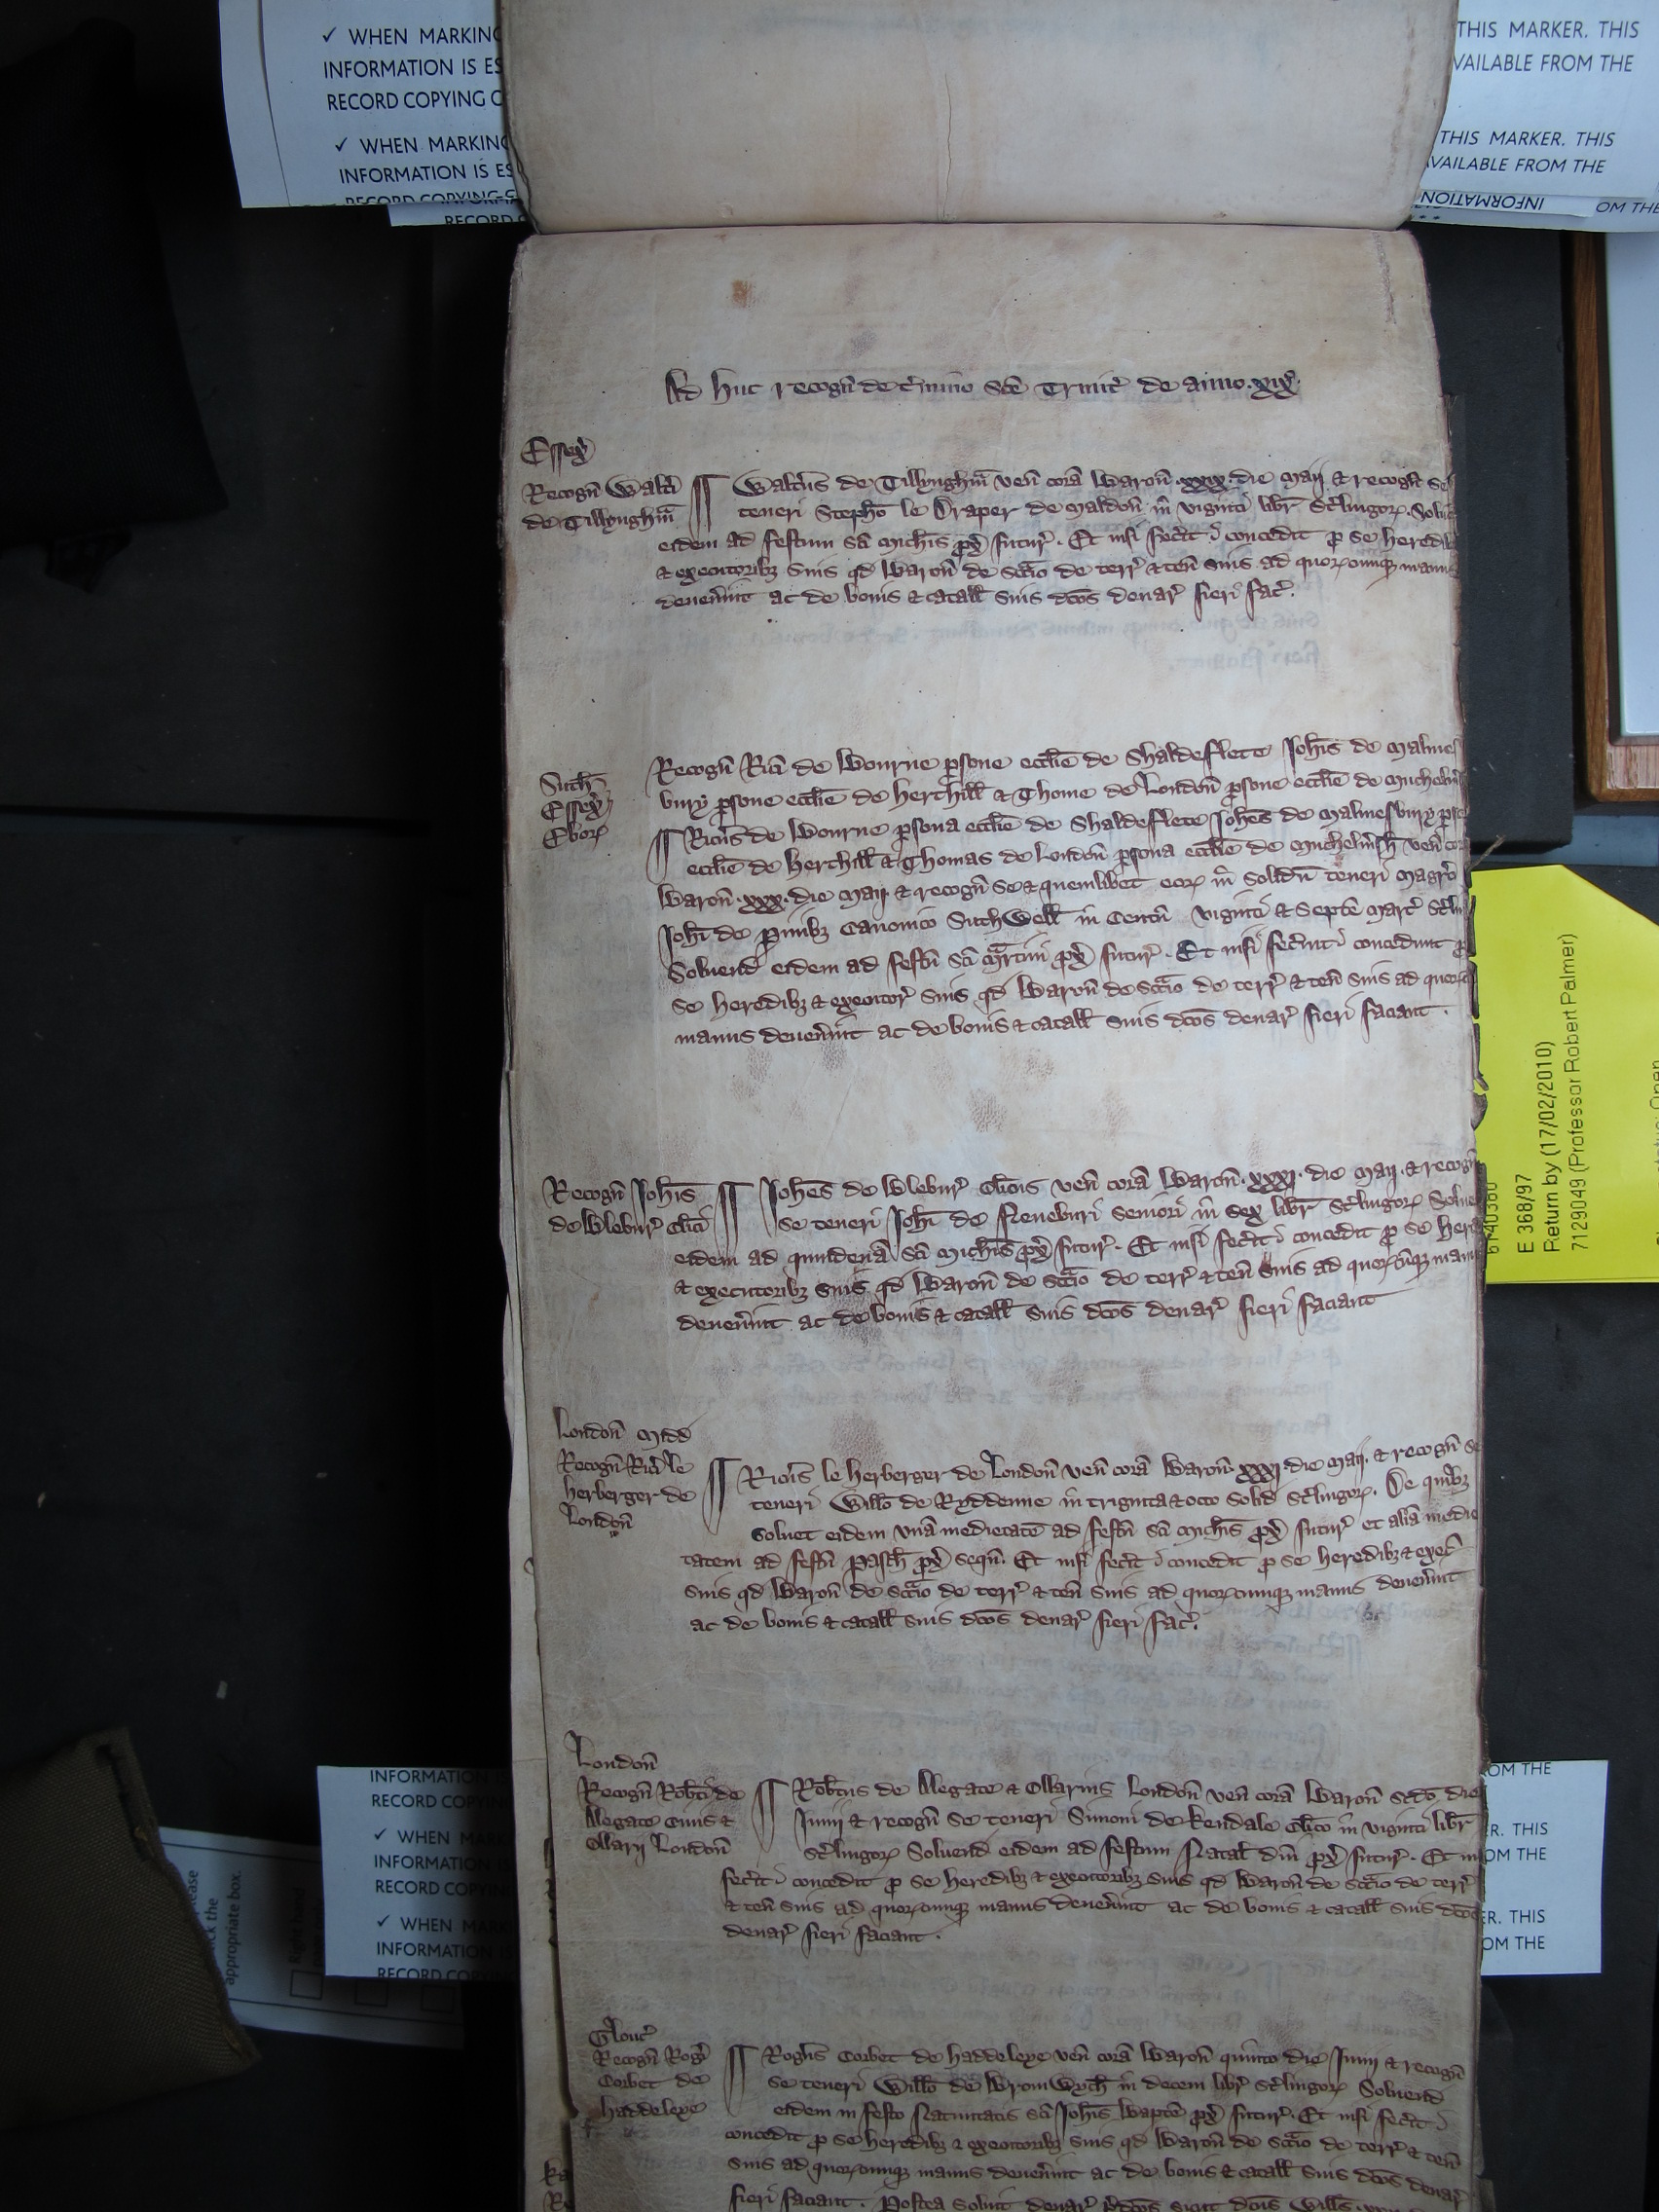 ✓ WHEN MARKING
INFORMATION IS ES
RECORD COPYING C
✓ WHEN MARKING
INFORMATION IS ES
RECORD COPYING
RECORD C
THIS MARKER. THIS
VAILABLE FROM THE
THIS MARKER. THIS
AVAILABLE FROM THE
INFORMATION
OM THE
Ad huc recogn̄ de t'mino Sc̄e Trinit' de anno .xix.
Essex
Recogn̄ Walt'i
de Tillynghm̄
Walt'us de Tillynghm̄ ven̄ corā Baron̄ .xxx. die Maij & recogn̄ se
teneri Steph̄o le Draper de Maldon̄ in viginti libr' St'lingoꝝ. Solu
eidem ad festum Sc̄i Mich̄is ꝓx' futur'. Et nisi fec'it concedit ꝑ se heredib
& executoribꝫ suis qd Baron̄ de Scc̄io de terr' & ten̄ suis ad quoꝝcumqꝫ manus
deuen'int ac de bonis & catall' suis dc̄os denar' fieri fac'.
Suth̄
Essex
Eboꝝ
Recogn̄ Ric̄i de Bourne ꝑsone eccl̄ie de Shaldeflete Joh̄is de Malmes
bury ꝑsone eccl̄ie de Herthill' & Thome de London̄ ꝑsone eccl̄ie de Michelm'
Ric̄us de Bourne ꝑsona eccl̄ie de Shaldeflete Joh̄es de Malmesbury ꝑso
eccl̄ie de Herthill' & Thomas de London̄ ꝑsona eccl̄ie de Michelm'sh̄ ven̄ cor
Baron̄ .xxx. die Maij & recogn̄ se & quemlibet eoꝝ in solidū teneri Magr̄o
Joh̄i de Canonico Suthwell' in Centū viginti & Septē Marc' St'lin
Soluend' eidem ad festū Sc̄i Martini ꝓx' futur'. Et nisi fec'int concedunt ꝑ
se heredibꝫ & executor' suis qd Baron̄ de Scc̄io de terr' & ten̄ suis ad quoꝝc
manus deuen'int ac de bonis & catall' suis dc̄os denar' fieri faciant.
Recogn̄ Joh̄is
de Blebur' cl'ici
Joh̄es de Blebur' Cl'icus ven̄ corā Baron̄ .xxxj. die Maij. & recogn̄
se teneri Joh̄i de Neueburi seniori in sex libr' St'lingoꝝ Solue
eidem ad quindenā Sc̄i Mich̄is ꝓx' futur'. Et nisi fec'it concedit ꝑ se here
& executoribꝫ suis qd Baron̄ de Scc̄io de terr' & ten̄ suis ad quoꝝcūqꝫ manu
deuen'int ac de bonis & catall' suis dc̄os denar' fieri faciant
London̄ Midd'
Recogn̄ Ric̄i le
herberger de
London̄
Ric̄us le herberger de London̄ ven̄ corā Baron̄ .xxxj. die Maij. & recogn̄ se
teneri Will'o de Ryddenne in triginta & octo solid' St'lingoꝝ. De quibꝫ
soluet eidem vnā medietatē ad festū Sc̄i Mich̄is ꝓx' futur' et aliā medie
tatem ad festū Pasch̄ ꝓx' sequn̄. Et nisi fec'it concedit ꝑ se heredibꝫ & exec'
suis qd Baron̄ de Scc̄io de terr' & ten̄ suis ad quoꝝcumqꝫ manus deuen'int
ac de bonis & catall' suis dc̄os denar' fieri fac'.
London̄
Recogn̄ Robt'i de
Alegate Ciuis &
Ollarij London̄
Robt'us de Alegate & Ollarius London̄ ven̄ corā Baron̄ sc̄do die
Junij & recogn̄ se teneri Simoni de Kendale Cl'ico in viginti libr'
St'lingoꝝ Soluend' eidem ad festum Natal' Dn̄i ꝓx' futur'. Et ni
fec'it concedit ꝑ se heredibꝫ & executoribꝫ suis qd Baron̄ de Scc̄io de terr'
& ten̄ suis ad quoꝝcumqꝫ manus deuen'int ac de bonis & catall' suis dc̄os
denar' fieri faciant.
Glouc'
Recogn̄ Rog'i
Corbet de
haddeleye
Rog'us Corbet de haddeleye ven̄ corā Baron̄ quinto die Junij & recogn̄
se teneri Will'o de Bromwych̄ in decem libr' St'lingoꝝ Soluend'
eidem in festo Natiuitatis Sc̄i Joh̄is Bapt'e ꝓx' futur'. Et nisi fec'it
concedit ꝑ se heredibꝫ & executoribꝫ suis qd Baron̄ de Scc̄io de terr' & ten̄
suis ad quoꝝcumqꝫ manus deuen'int ac de bonis & catall' suis dc̄os denar'
fieri faciant. Postea soluit denar' p'dc̄os sicut dc̄us Will's
E 368/97
Return by (17/02/2010)
7129049 (Professor Robert Palmer)
INFORMATION
RECORD COPYIN
✓ WHEN MA
INFORMATION
RECORD COPYIN
✓ WHEN MAR
INFORMATION IS
RECORD COP
ick the
appropriate box.
OM THE
ER. THIS
OM THE
ER. THIS
OM THE